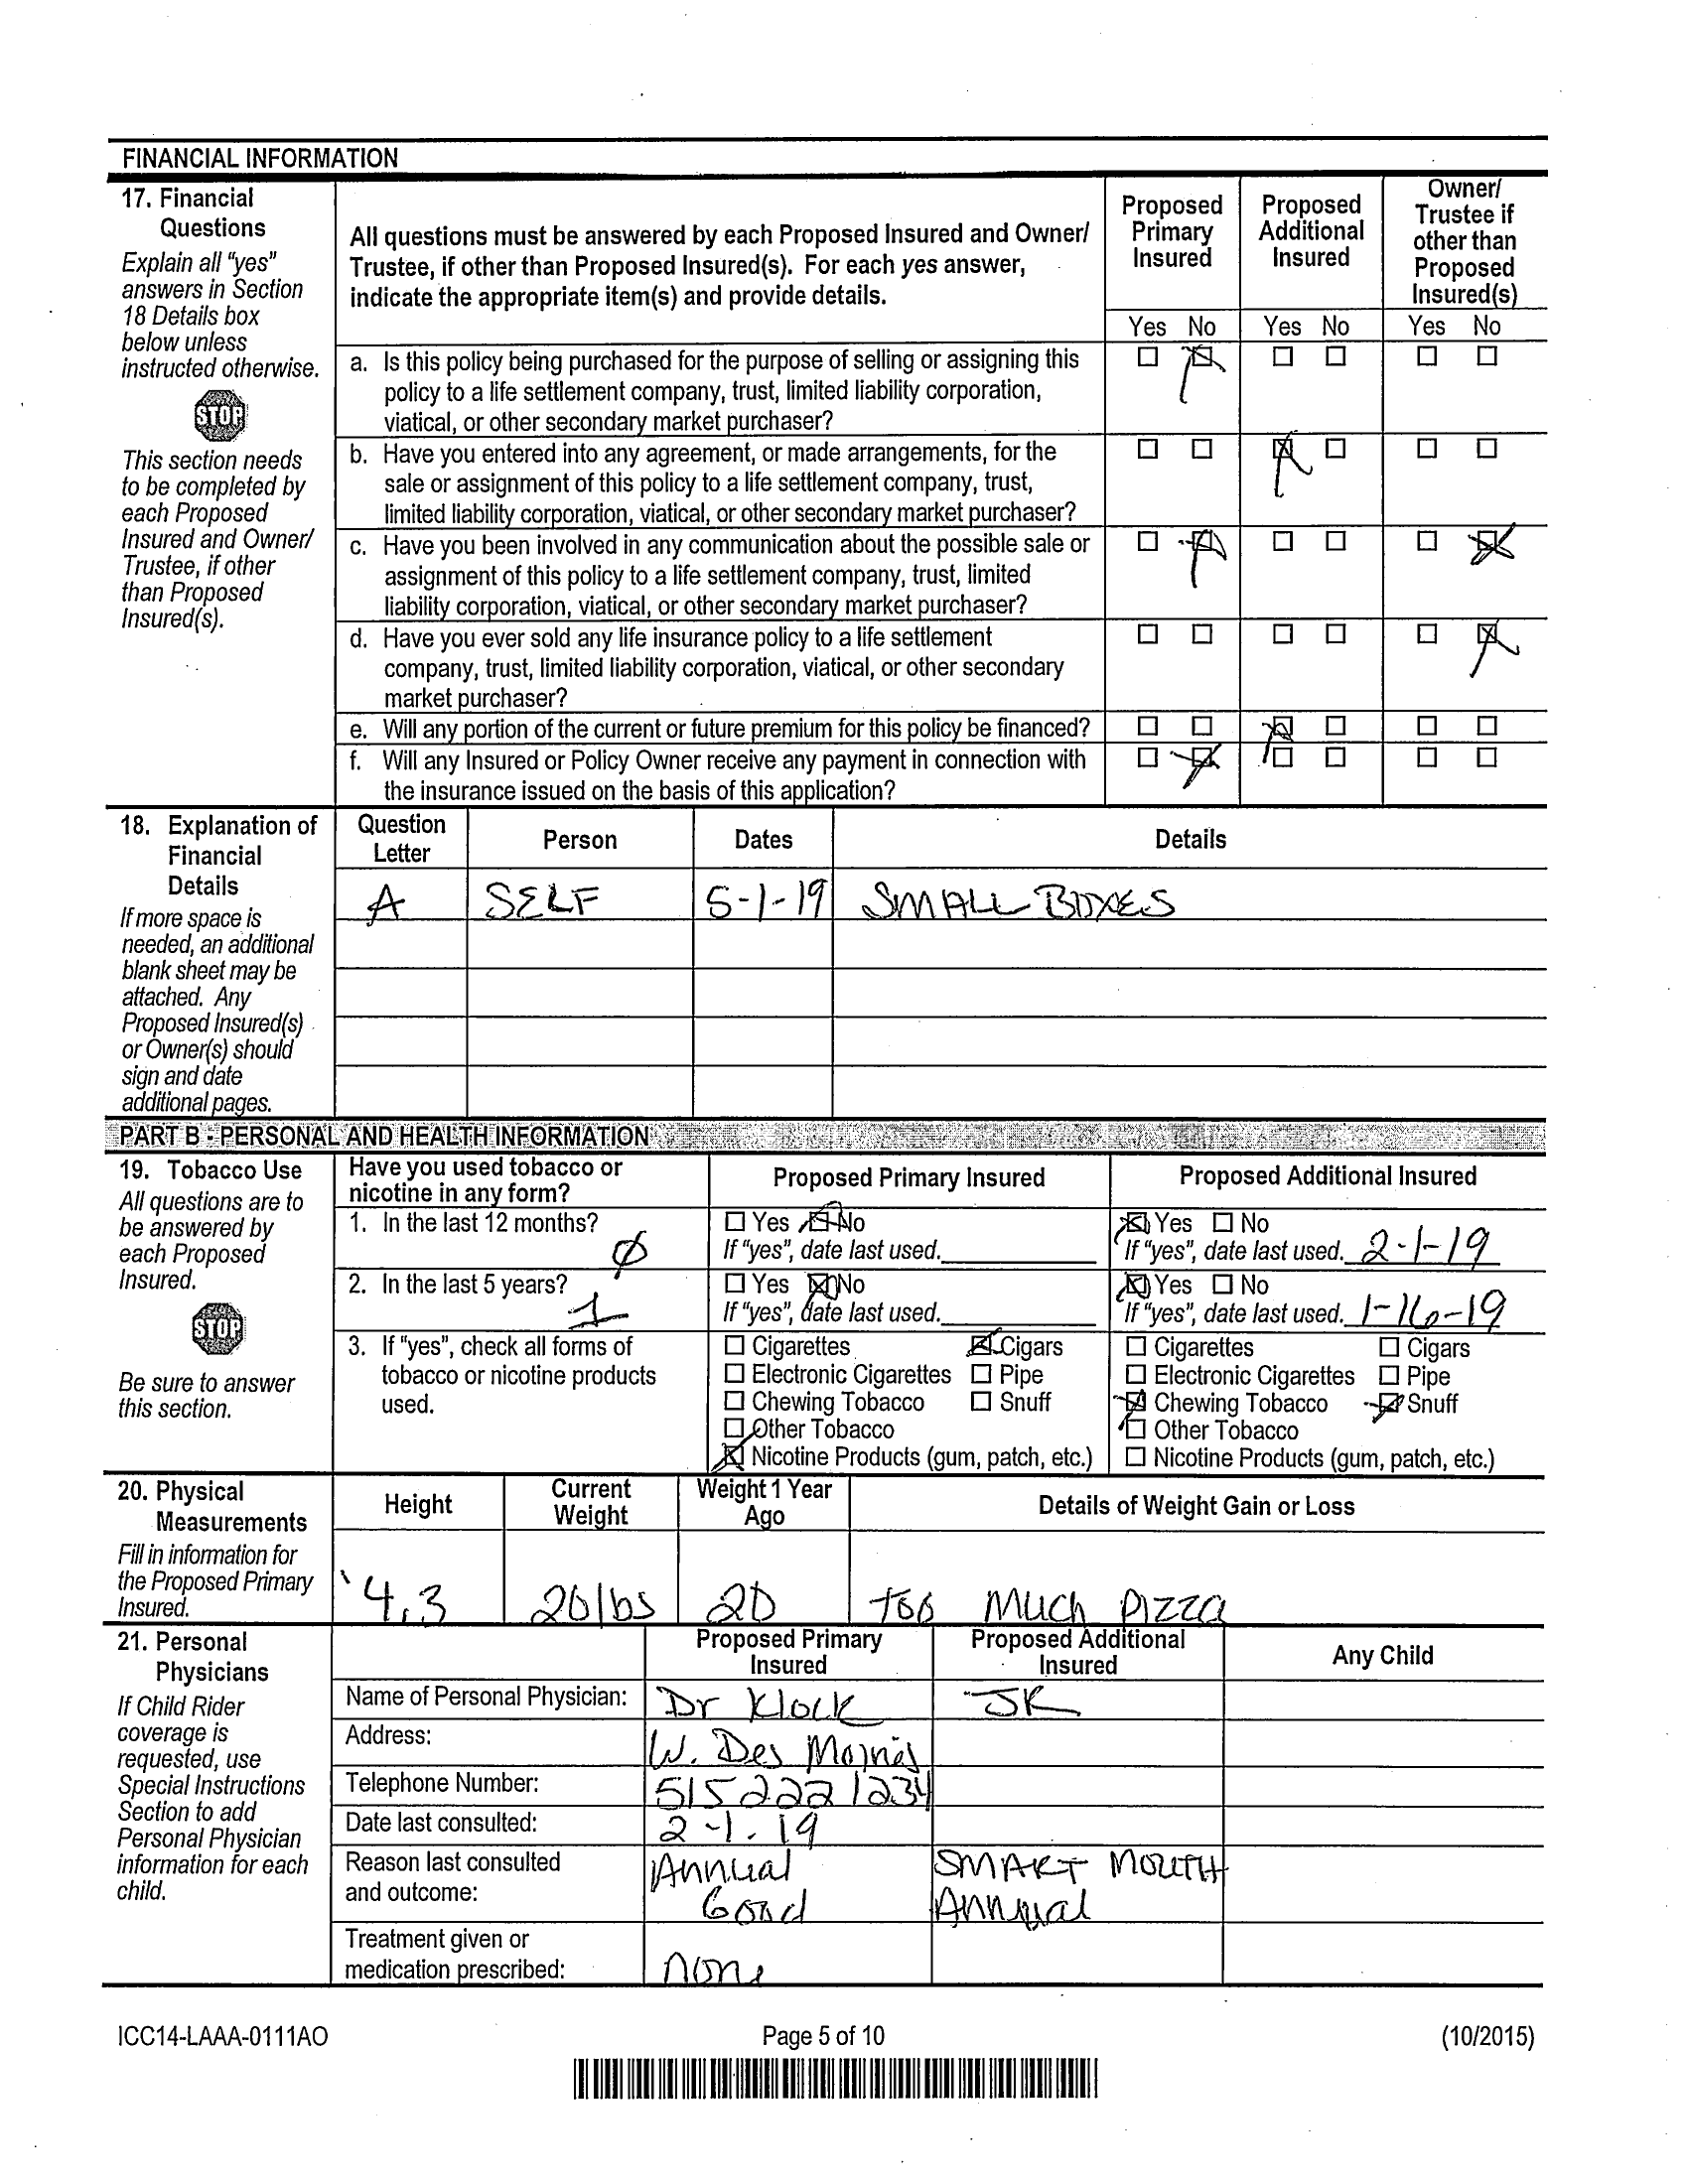 FINANCIAL INFORMATION
17. Financial
Questions
Explain all “yes”
answers in Section
18 Details box
below unless
instructed otherwise.
STOP
This section needs
to be completed by
each Proposed
Insured and Owner/
Trustee, if other
than Proposed
Insured(s).
All questions must be answered by each Proposed Insured and Owner/
Trustee, if other than Proposed Insured(s). For each yes answer,
indicate the appropriate item(s) and provide details.
Proposed
Primary
Insured
Proposed
Additional
Insured
Owner/
Trustee if
other than
Proposed
Insured(s)
Yes No Yes No Yes No
a. Is this policy being purchased for the purpose of selling or assigning this
policy to a life settlement company, trust, limited liability corporation,
viatical, or other secondary market purchaser?
b. Have you entered into any agreement, or made arrangements, for the
sale or assignment of this policy to a life settlement company, trust,
limited liability corporation, viatical, or other secondary market purchaser?
c. Have you been involved in any communication about the possible sale or
assignment of this policy to a life settlement company, trust, limited
liability corporation, viatical, or other secondary market purchaser?
d. Have you ever sold any life insurance policy to a life settlement
company, trust, limited liability corporation, viatical, or other secondary
market purchaser?
e. Will any portion of the current or future premium for this policy be financed?
f. Will any Insured or Policy Owner receive any payment in connection with
the insurance issued on the basis of this application?
18. Explanation of
Financial
Details
If more space is
needed, an additional
blank sheet may be
attached. Any
Proposed Insured(s)
or Owner(s) should
sign and date
additional pages.
Question
Letter
Person
Dates
Details
A SELF 5-1-19 SMALL BOXES
PART B - PERSONAL AND HEALTH INFORMATION
19. Tobacco Use
All questions are to
be answered by
each Proposed
Insured.
STOP
Be sure to answer
this section.
Have you used tobacco or
nicotine in any form?
Proposed Primary Insured
Proposed Additional Insured
1. In the last 12 months?
Ø
Yes No
If “yes”, date last used.
Yes No
If “yes”, date last used. 2-1-19
2. In the last 5 years?
1
Yes No
If “yes”, date last used.
Yes No
If “yes”, date last used. 1-16-19
3. If “yes”, check all forms of
tobacco or nicotine products
used.
Cigarettes Cigars
Electronic Cigarettes Pipe
Chewing Tobacco Snuff
Other Tobacco
Nicotine Products (gum, patch, etc.)
Cigarettes Cigars
Electronic Cigarettes Pipe
Chewing Tobacco Snuff
Other Tobacco
Nicotine Products (gum, patch, etc.)
20. Physical
Measurements
Fill in information for
the Proposed Primary
Insured.
Height
Current
Weight
Weight 1 Year
Ago
Details of Weight Gain or Loss
4,3 20lbs 20 too Much Pizza
21. Personal
Physicians
If Child Rider
coverage is
requested, use
Special Instructions
Section to add
Personal Physician
information for each
child.
Proposed Primary
Insured
Proposed Additional
Insured
Any Child
Name of Personal Physician: Dr Klock JK
Address: W. Des Moines
Telephone Number: 515 222 1234
Date last consulted: 2-1-19
Reason last consulted
and outcome:
Annual
Good
SMART MOUTH
Annual
Treatment given or
medication prescribed:
none
ICC14-LAAA-0111AO
Page 5 of 10
(10/2015)